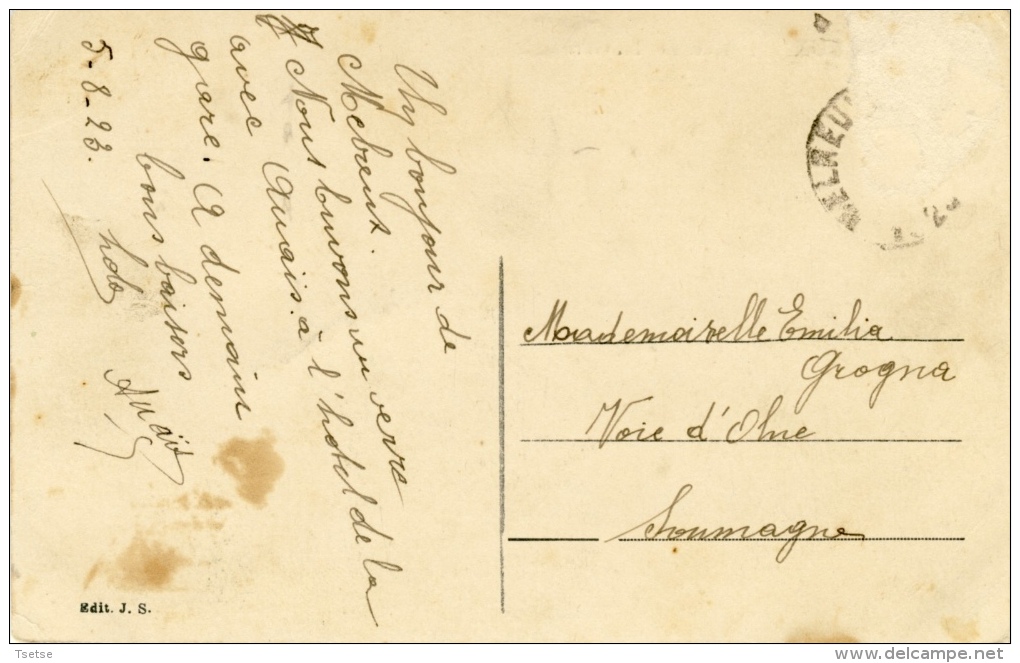 Un bonjour de
Melreux.
Nous buvons un verre
avec Anaïs à l'hotel de la
gare. A demain
bons baisers
Anaïs
5-8-23.
MELREU
Mademoiselle Emilia
Grogna
Voie d'Olne
Soumagne
Edit. J. S.
Tsetse
delcampe.net